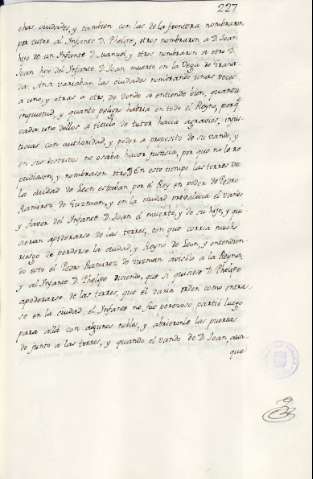 227
chas ciudades, y tambien con las de la frontera nombraron
por tutor al Infante D. Phelipe, otros nombraron a D. Juan
hijo de un Infante D. Manuel, y otros nombraron al otro D.
Juan hijo del Infante D. Juan muerto en la Vega de Grana-
da. Ansi variaban las ciudades nombrando unas veces
a uno, y otras a otro, de donde se entiende bien, quanta
inquietud, y quanto peligro habria en todo el Reyno, porq̃
cada uno dellos a titulo de tutor hacia agravios, injus-
ticias con authoridad, y poder a proposito de su vando, y
en sus distritos no osaba hacer justicia, por que no lo re-
pudiasen, y nombrasen otro. En este tiempo las torres de
la ciudad de Leon estaban por el Rey en poder de Pedro
Ramirez de Guzman, y en la ciudad prevalecia el vando
y favor del Infante D. Juan el muerto, y de su hijo, y qui
sieran apoderarse de las torres, con que corria mucho
riesgo de perderse la ciudad, y Reyno de Leon, y entendien
do esto el Pedro Ramirez de Guzman avisolo a la Reyna,
y al Infante D. Phelipe diciendo, que si quisiese D. Phelipe
apoderarse de las torres, que el daria orden como entra-
se en la ciudad. el Infante no fue perezoso partió luego
para allá con algunos nobles, y abrieronle las puertas
de junto a las torres, y quando el vando de D. Juan,
que